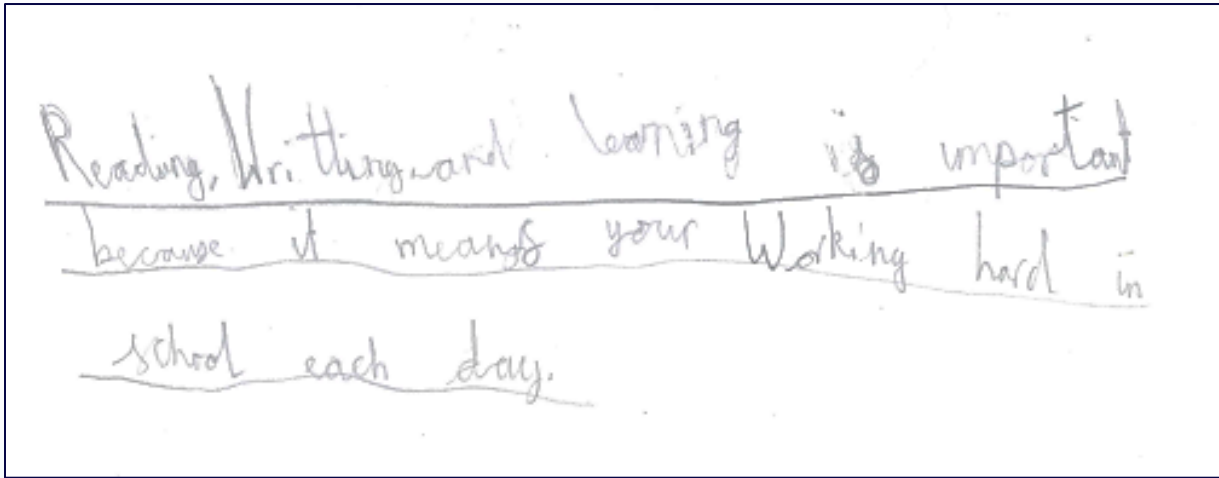 Reading, Writting and learning is important
because it means your Working hard in
school each day.